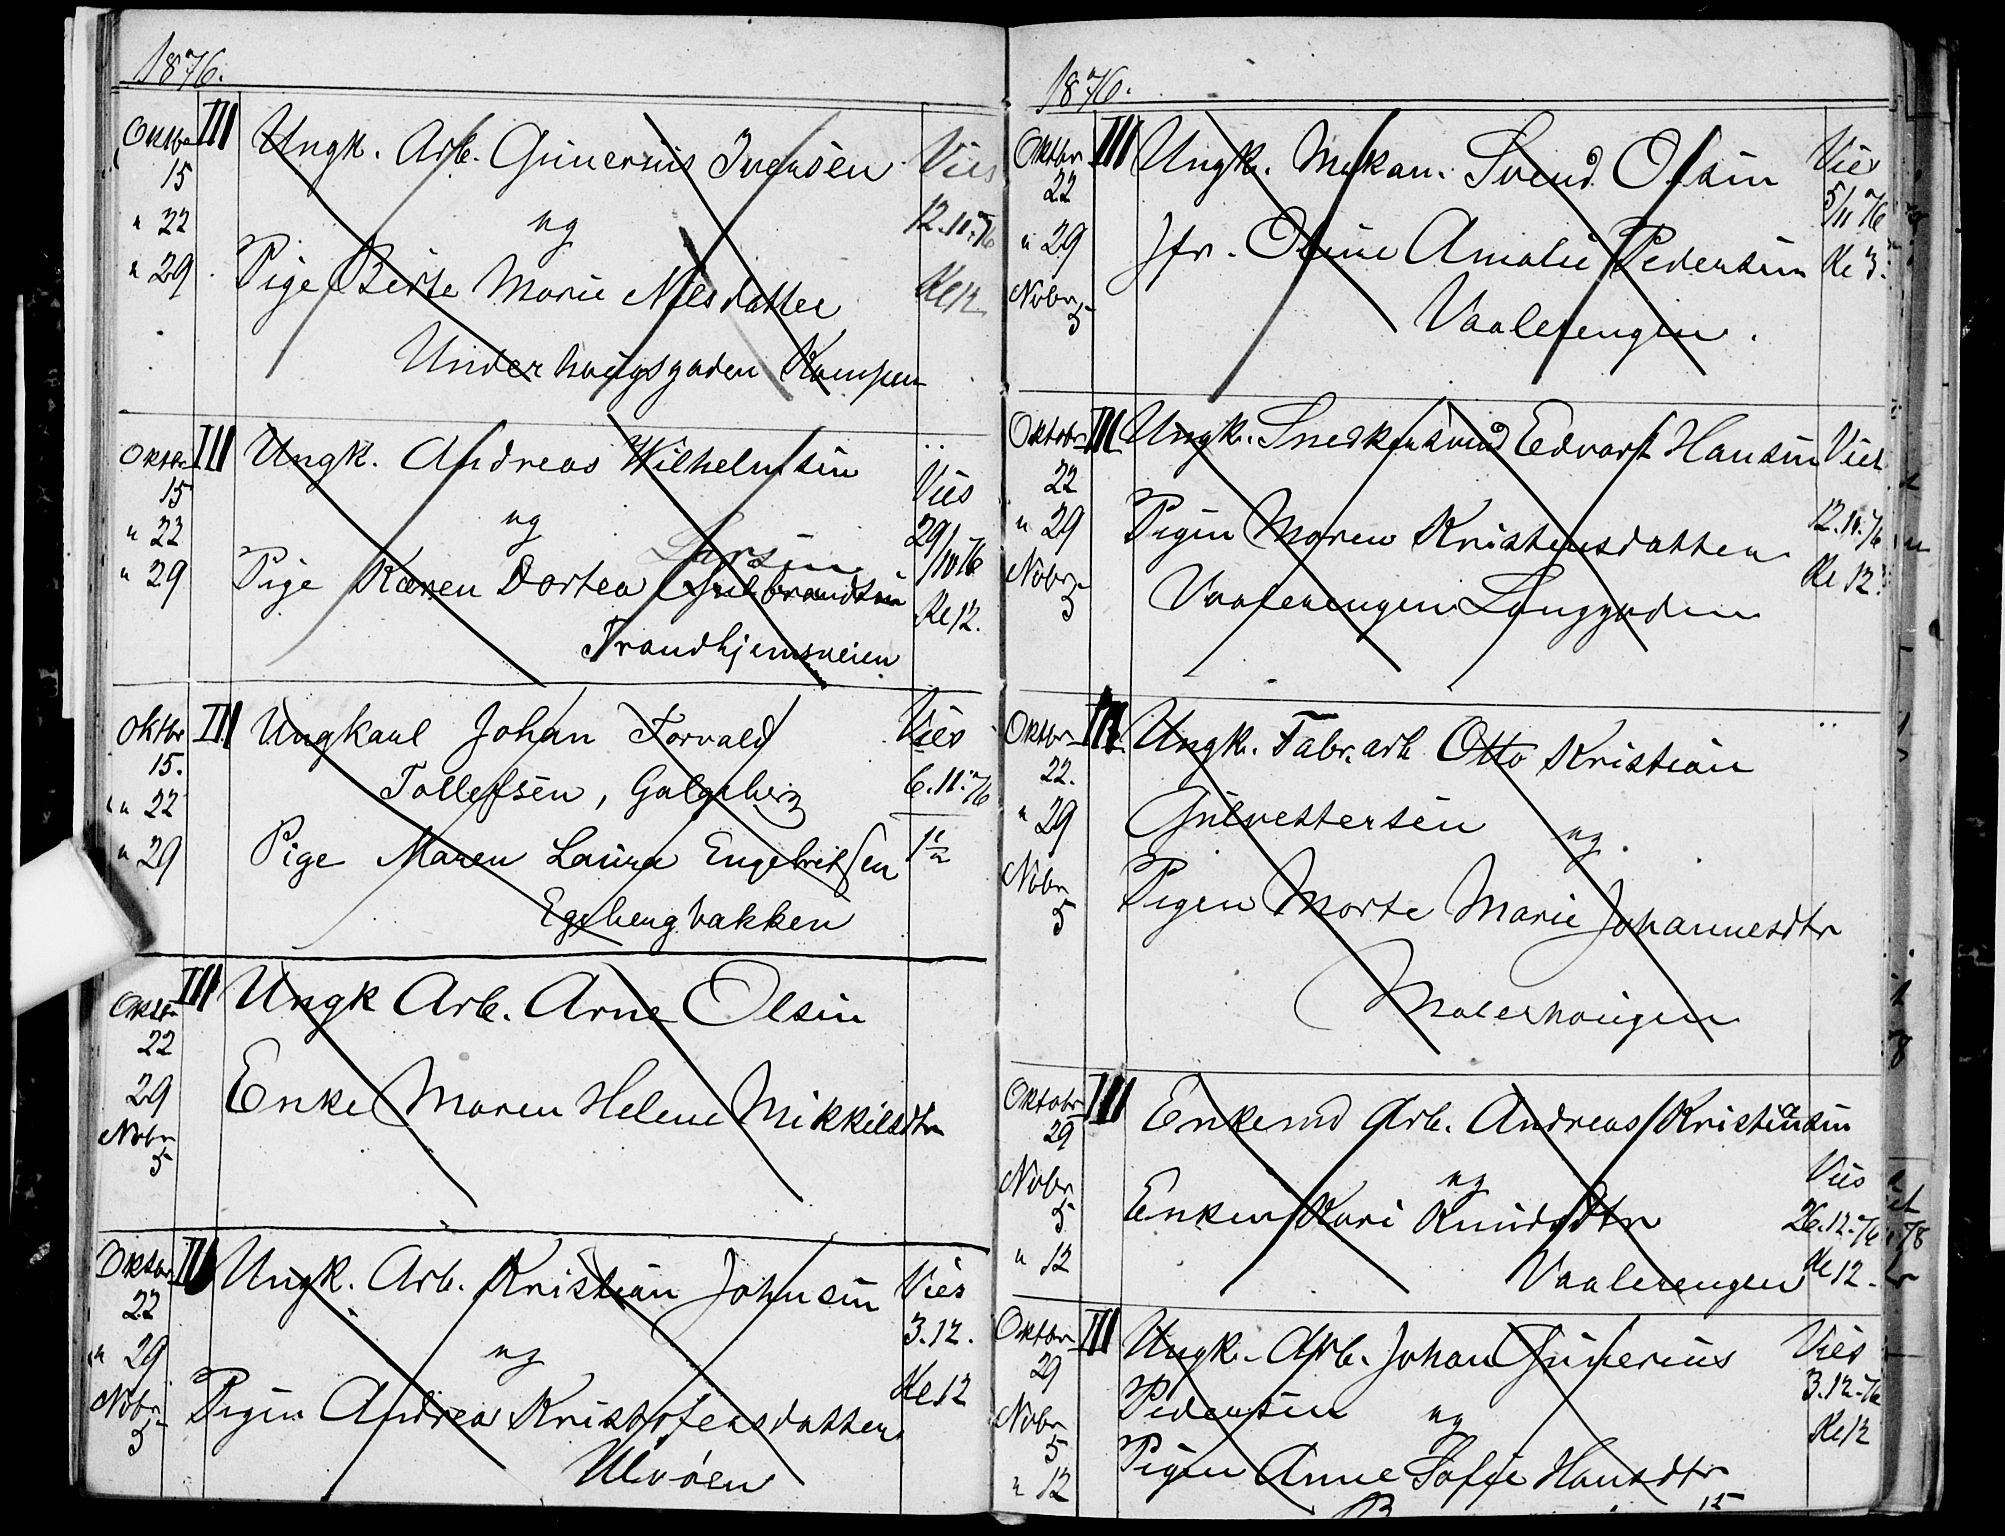 1876.
Oktbr 15 III Ungk. Arb. Gunerius Iversen Vies
" 22 og 12.11.76
" 29 Pige Berte Marie Nilsdatter Kl 12
Underhaugsgaden Kampen
Oktbr 15 III Ungk. Andreas Wilhelmsen Vies
" 22 og 29/10 76
Larsen
" 29 Pige Karen Dortea Gulbrandsen Kl 12.
Trondhjemsveien
Oktbr 15. III Ungkarl Johan Torvald Vies
" 22 Tollefsen, Galgeberg 6.11.76
" 29 Pige Maren Laura Engebritsen 1½
Egebergbakken
Oktbr 22 III Ungk Arb. Arne Olsen
29 Enke Maren Helene Mikkelsdtr
Nobr 5
Oktbr 22 III Ungk. Arb. Kristian Johnsen Vies
" 29 og 3.12.
Nobr 5 Pigen Andrea Kristofersdatter Kl 12
Ulvøen
1876.
Oktbr 22 III Ungk. Mekan. Svend Olsen Vies 5/11 76
" 29 Jfr. Oline Amalie Pedersen Kl 3.
Nobr 5 Vaalerengen.
Oktobr 22 III Ungk. Snedkersvend Edvart Hansen Viet
" 29 Pigen Maren Kristensdatter 12.11.76
Nobr 5 Vaalerengen Langgaden Kl 12
Oktbr 22. III Ungk. Fabr. arb Otto Kristian
" 29 Gulvestersen og
Nobr 5 Pigen Marte Marie Johannesdtr
Malerhaugen
Oktobr 29 III Enkemd Arb. Andreas Kristiansen
Nobr 5 og Vies
" 12 Enken Kari Knudsdtr 26.12.76
Vaalerengen Kl 12.
Oktbr 29 III Ungk. Arb. Johan Gunerius Vies
Nobr 5 Pedersen og 3.12.76
" 12 Pigen Anne Sofie Hansdtr Kl 12
15